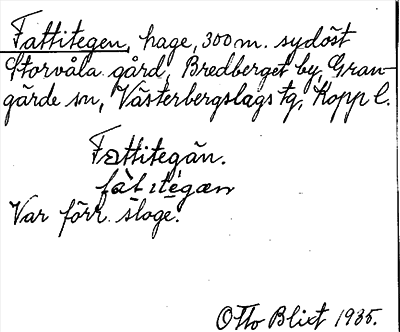 Fattitegen, hage, 300 m. sydöst
Storvåla gård, Bredberget by, Gran-
gärde sn, Västerbergslags tg, Kopp l.
Fattitegän.
fàt itégæn
Var förr sloge.
Otto Blixt 1935.